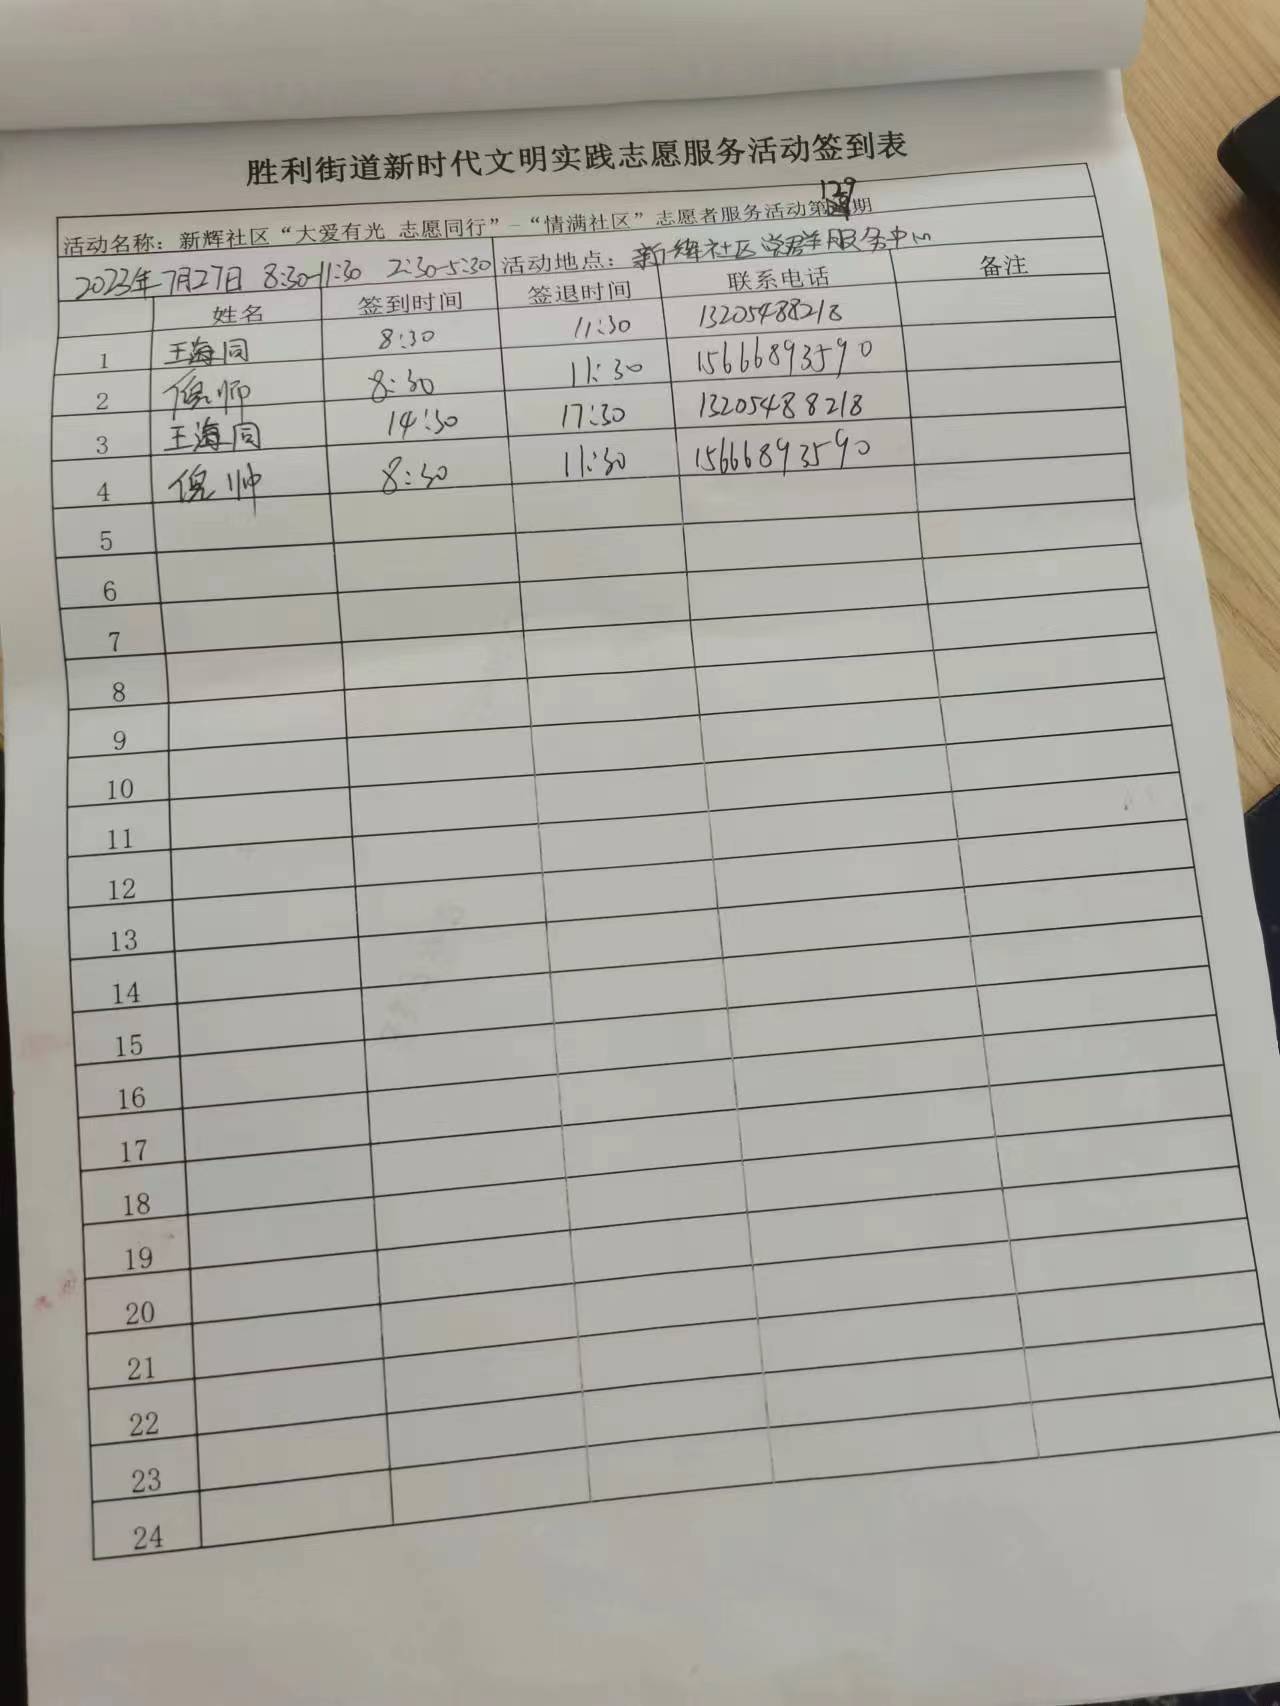 胜利街道新时代文明实践志愿服务活动签到表
活动名称：新辉社区“大爱有光 志愿同行”–“情满社区”志愿者服务活动第129期
2023年7月27日 8:30-11:30 2:30-5:30 活动地点：新辉社区党群服务中心
姓名 签到时间 签退时间 联系电话 备注
1 王海同 8:30 11:30 13205488218
2 倪帅 8:30 11:30 15666893590
3 王海同 14:30 17:30 13205488218
4 倪帅 8:30 11:30 15666893590
5
6
7
8
9
10
11
12
13
14
15
16
17
18
19
20
21
22
23
24